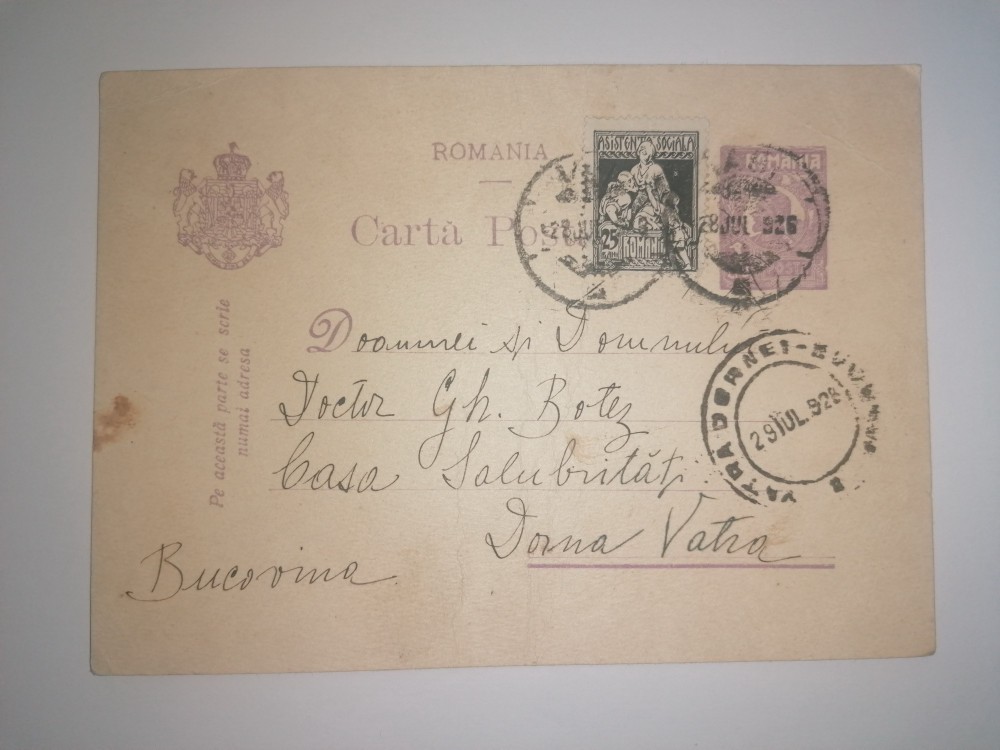 ROMANIA
Carta
ASISTENȚA SOCIALA
25
ROMANIA
ROMANIA
28 JUL 926
Pe această parte se scrie
numai adresa
Doamnei și Domnului
Doctor Gh. Botez
Casa Salubrități
Dorna Vatra
Bucovina
VATRA DORNEI-
29 IUL. 926